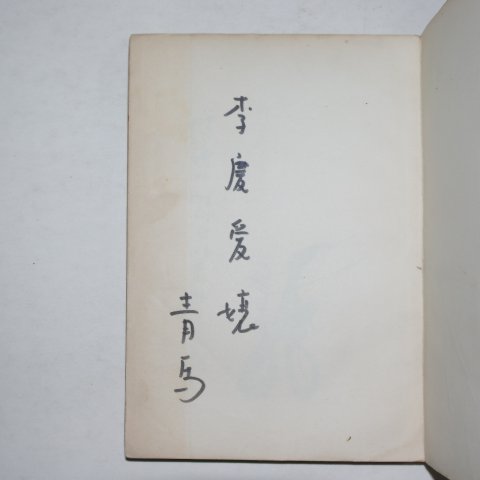 李慶愛孃
青馬